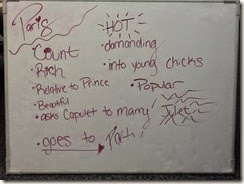 Paris
HOT
Count
• demanding
• Rich
• into young chicks
• Relative to Prince
• Popular
• Beautiful
• asks Capulet to marry Juliet
• goes to